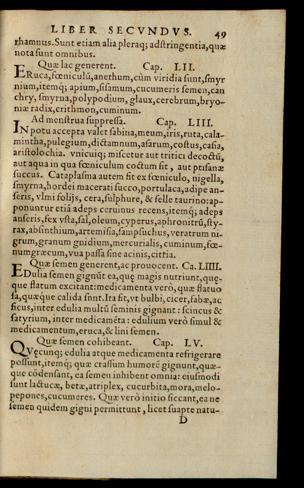 LIBER SECVNDVS. 49
rhamnus. Sunt etiam alia pleraq; adstringentia, quæ
nota sunt omnibus.
Quæ lac generent. Cap. LII.
ERuca, fœniculū, anethum, cùm viridia sunt, smyr
nium, itemq; apium, sisamum, cucumeris semen, can
chry, smyrna, polypodium, glaux, cerebrum, bryo-
niæ radix, erithmon, cuminum.
Ad menstrua suppressa. Cap. LIII.
IN potu accepta valet sabina, meum, iris, ruta, cala-
mintha, pulegium, dictamnum, asarum, costus, casia,
aristolochia. vnicuiq; miscetur aut tritici decoctū,
aut aqua in qua fœniculum coctum sit, aut ptisanæ
succus. Cataplasma autem sit ex fœniculo, nigella,
smyrna, hordei macerati succo, portulaca, adipe an-
seris, vlmi folijs, cera, sulphure, & felle taurino: ap-
ponuntur etiā adeps ceruinus recens, itemq; adeps
anseris, fex vsta, sal, oleum, cyperus, aphronitrū, sty-
rax, absinthium, artemisia, sampsuchus, veratrum ni-
grum, granum gnidium, mercurialis, cuminum, fœ-
numgræcum, vua passa sine acinis, cittia.
Quæ semen generent, ac prouocent. Ca. LIIII.
EDulia semen gignūt ea, quę magis nutriunt, quę-
que flatum excitant: medicamenta verò, quæ flatuo
sa, quæque calida sint. Ita fit, vt bulbi, cicer, fabæ, ac
ficus, inter edulia multū seminis gignant: scincus &
satyrium, inter medicamēta: edulium verò simul &
medicamentum, eruca, & lini semen.
Quæ semen cohibeant. Cap. LV.
QVęcunq; edulia atque medicamenta refrigerare
possunt, itemq; quæ crassum humorē gignunt, quæ-
que cōdensant, ea semen inhibent omnia: eiusmodi
sunt lactucæ, betæ, atriplex, cucurbita, mora, melo-
pepones, cucumeres. Quæ verò initio siccant, ea ne
semen quidem gigni permittunt, licet suapte natu-
D